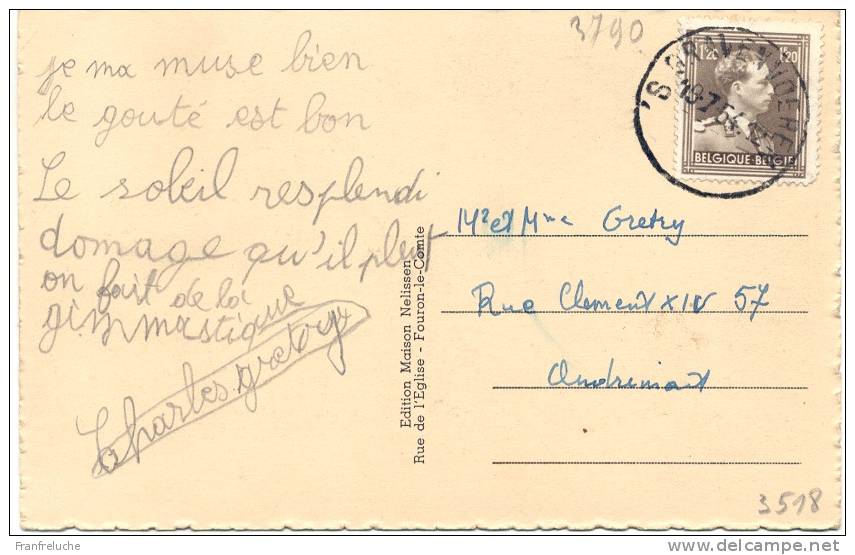 3790
je ma muse bien
le gouté est bon
Le soleil resplendi
domage qu'il pleut
on fait de la
gimmastique
Charles gretry
Edition Maison Nelissen
Rue de l'Eglise - Fouron-le-Comte
1F20 1F20
BELGIQUE-BELGIE
'S GRAVENVOEREN
Mr et Mme Gretry
Rue Clement XIV 57
Andrimont
3518
Franfreluche
www.delcampe.net